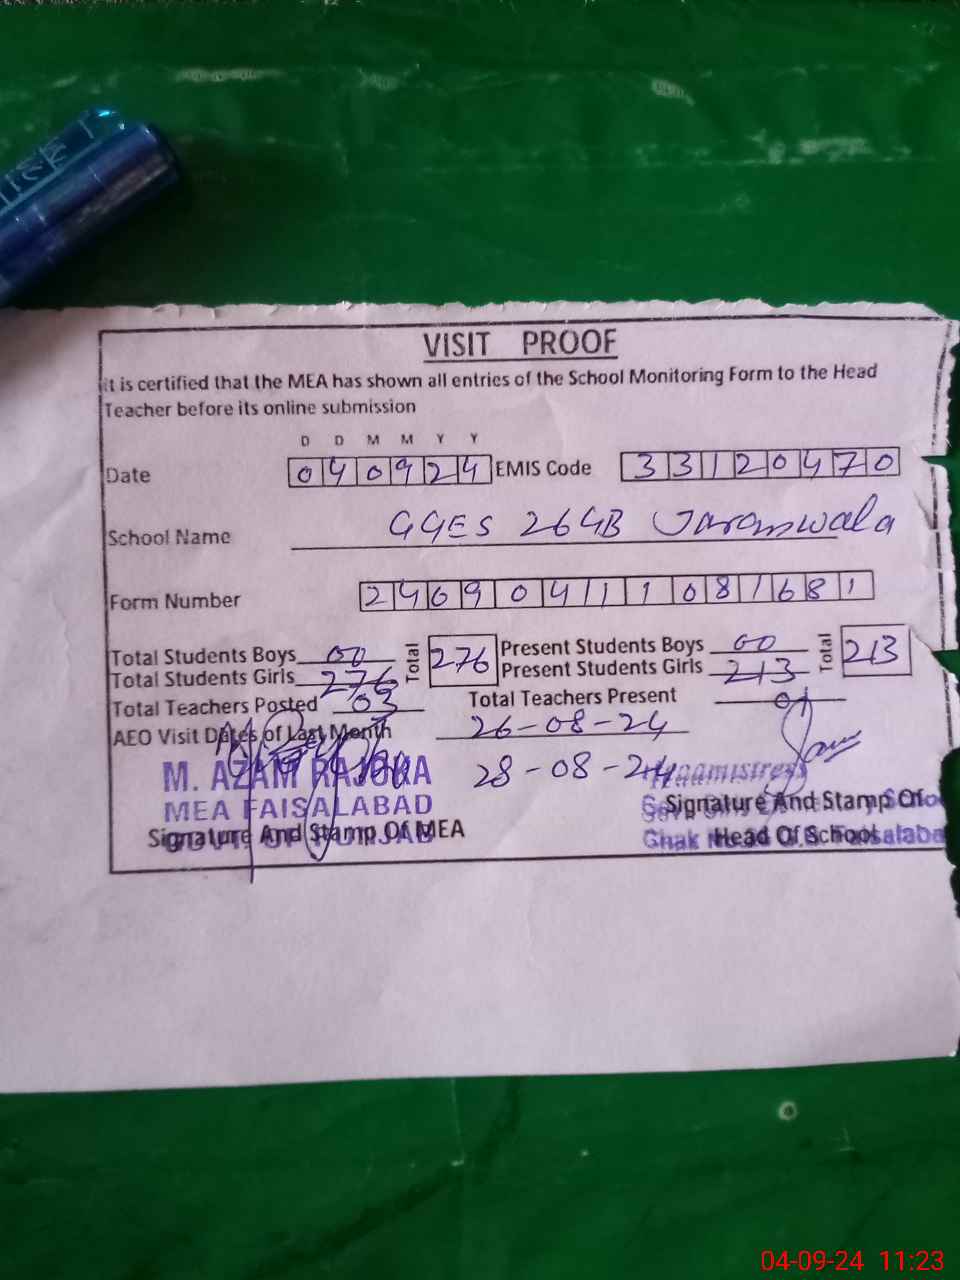 VISIT PROOF
It is certified that the MEA has shown all entries of the School Monitoring Form to the Head
Teacher before its online submission
D D M M Y Y
Date 040924 EMIS Code 33120470
School Name GGES 264GB Jaranwala
Form Number 246904111081681
Total Students Boys 00 Total 276 Present Students Boys 00 Total 213
Total Students Girls 276 Present Students Girls 213
Total Teachers Posted 03 Total Teachers Present 01
AEO Visit Dates of Last Month 26-08-24
28-08-24
M. AZAM RAJOKA
MEA FAISALABAD
GOVT OF PUNJAB
Signature And Stamp Of MEA
Headmistress
Signature And Stamp Of
Head Of School
Chak Faisalaba
04-09-24 11:23